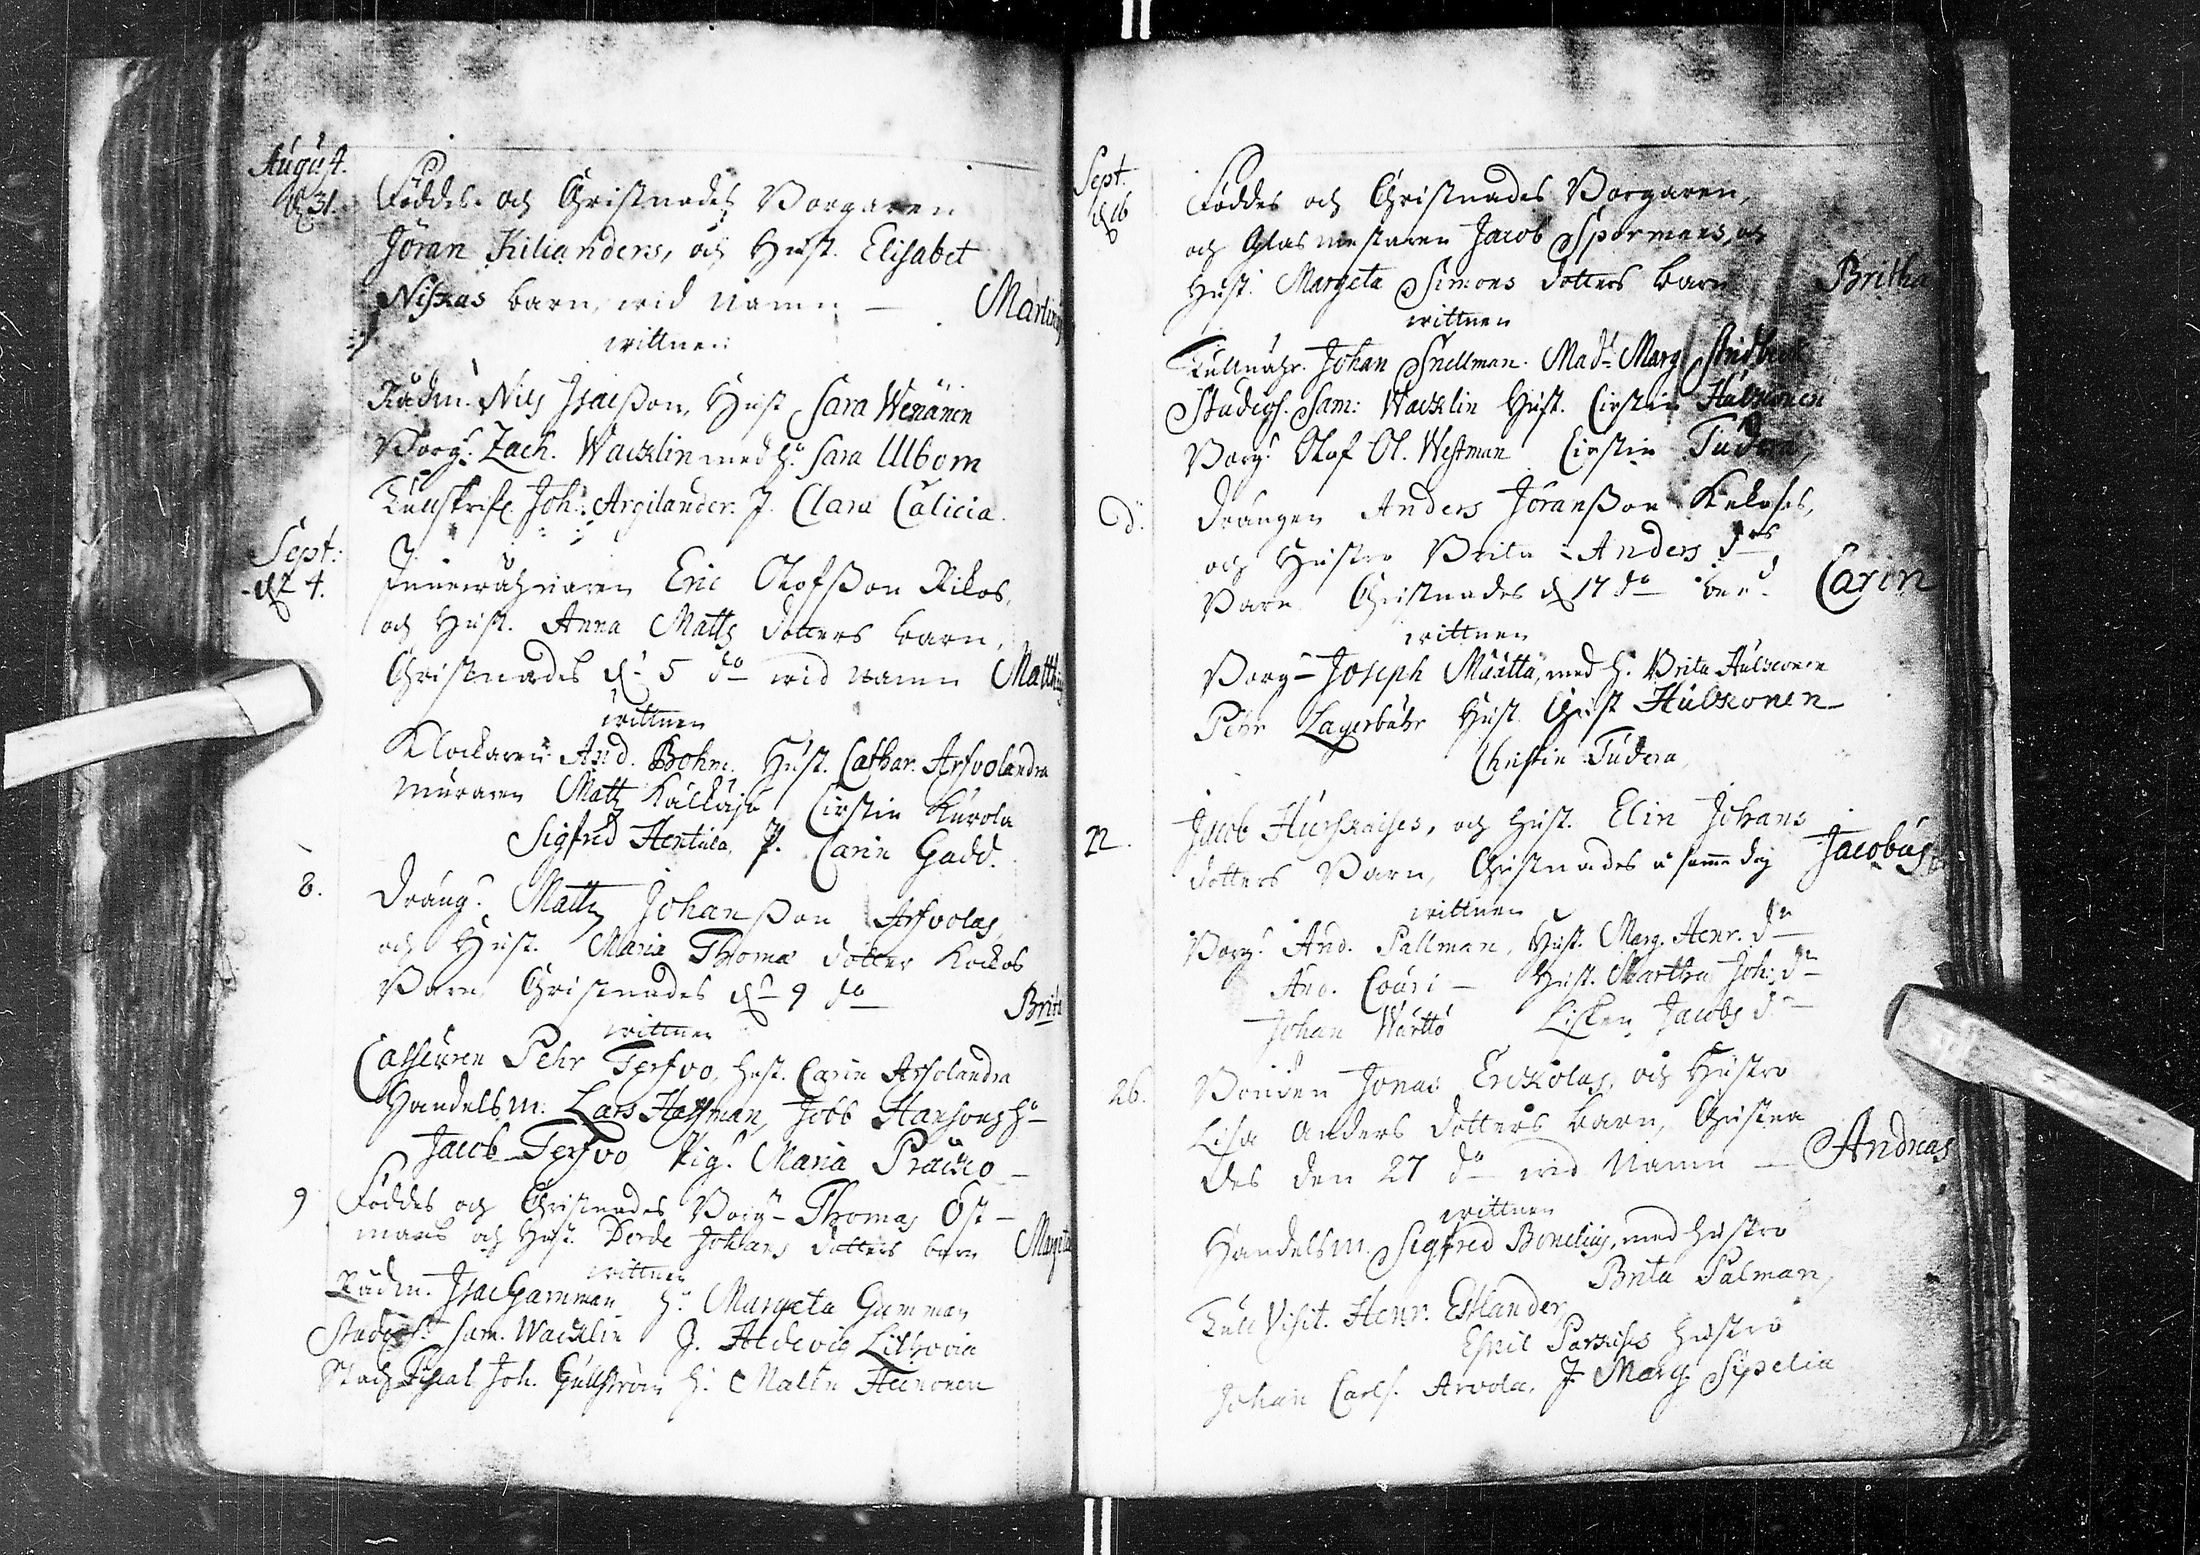 August.
d 31. Föddes och Christnades Borgaren
Jöran Kilianders, och Hust. Elisabet
Niskas barn, wid Namn — Martin
wittnen
Rådm. Nils Isacßon, Hust Sara Wenänen
Borg. Zach. Wacklin med h. Sara Ulbom
Tullskrif. Joh: Argilander. J. Clara Calicia.
Sept:
d 4. Eric Olofßon Rikos,
och Hust. Anna Matts dotters barn,
Christnades d. 5 do wid namn Matthias
wittnen
Klockaren And. Bohm. Hust. Cathar. Arfvolandra
Muraren Matts Kälkäjä Cirstin Kurola
Sigfred Hentula, P. Carin Gadd.
8. Dräng. Matts Johanßon Arfvolas,
och Hust. Maria Thomæ dotter Kockos
Barn Christnades d. 9 do Brita
wittnen
Casseuren Pehr Terfvo, Hust. Carin Arfolandra
Handelsm: Lars Hoffman, Jobb Hansons h.
Jacob Terfvo Pig. Maria Präcko
9 Föddes och Christnades Borg. Thomas Öst-
mans och Hust. Johans dotters barn Margeta
wittnen
Rådm. Isac Gamman h. Margeta Gamman
Studios. Sam. Wacklin J. Hedevig Lithovia
Joh. Gullström h. Malin Heinonen
Sept.
d 16 Föddes och Christnades Borgaren,
och Glasmestaren Jacob Spormans, och
Hust. Margeta Simons dotters barn Britha
wittnen
Johan Snellman. Mad. Marg.
Studios. Sam: Wacklin Hust. Cirstin Hulkonen
Borg. Olof Ol. Westman Cirstin Tudera
d. Drängen Anders Joranßon Kekoses,
och Hustro Brita Anders drs
Barn Christnades d 17 do Carin
wittnen
Borg. Joseph Määttä, med h. Brita Hulkonen
Pehr Lagerbohr Hust. Christ Hulkonen
Christin Tudera
22. Jacob Hurskaises, och Hust. Elin Johans
dotters Barn, Christnades a samma dag Jacobus
wittnen
Borg. And. Pallman, Hust. Marg. Henr. dr
And. Couri — Hust. Martha Joh: dr
Johan Wärttö Lisken Jacobs dr
26. Bonden Jonas Erckolas, och Hustro
Lisa Anders dotters barn, Christna
des den 27 do wid Namn — Andreas
wittnen
Handelsm. Sigfred Bonelius, med hustro
Brita Palman,
Tull Visit. Henr. Esslander,
Eskil Parkises hustro
Johan Carls. Arvola, J. Marg. Sipelia